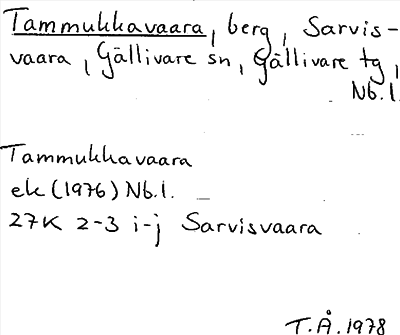 Tammukkavaara, berg, Sarvis-
vaara, Gällivare sn, Gällivare tg,
Nb.l.
Tammukkavaara
ek (1976) Nb.l.
27K 2-3 i-j Sarvisvaara
T.Å. 1978